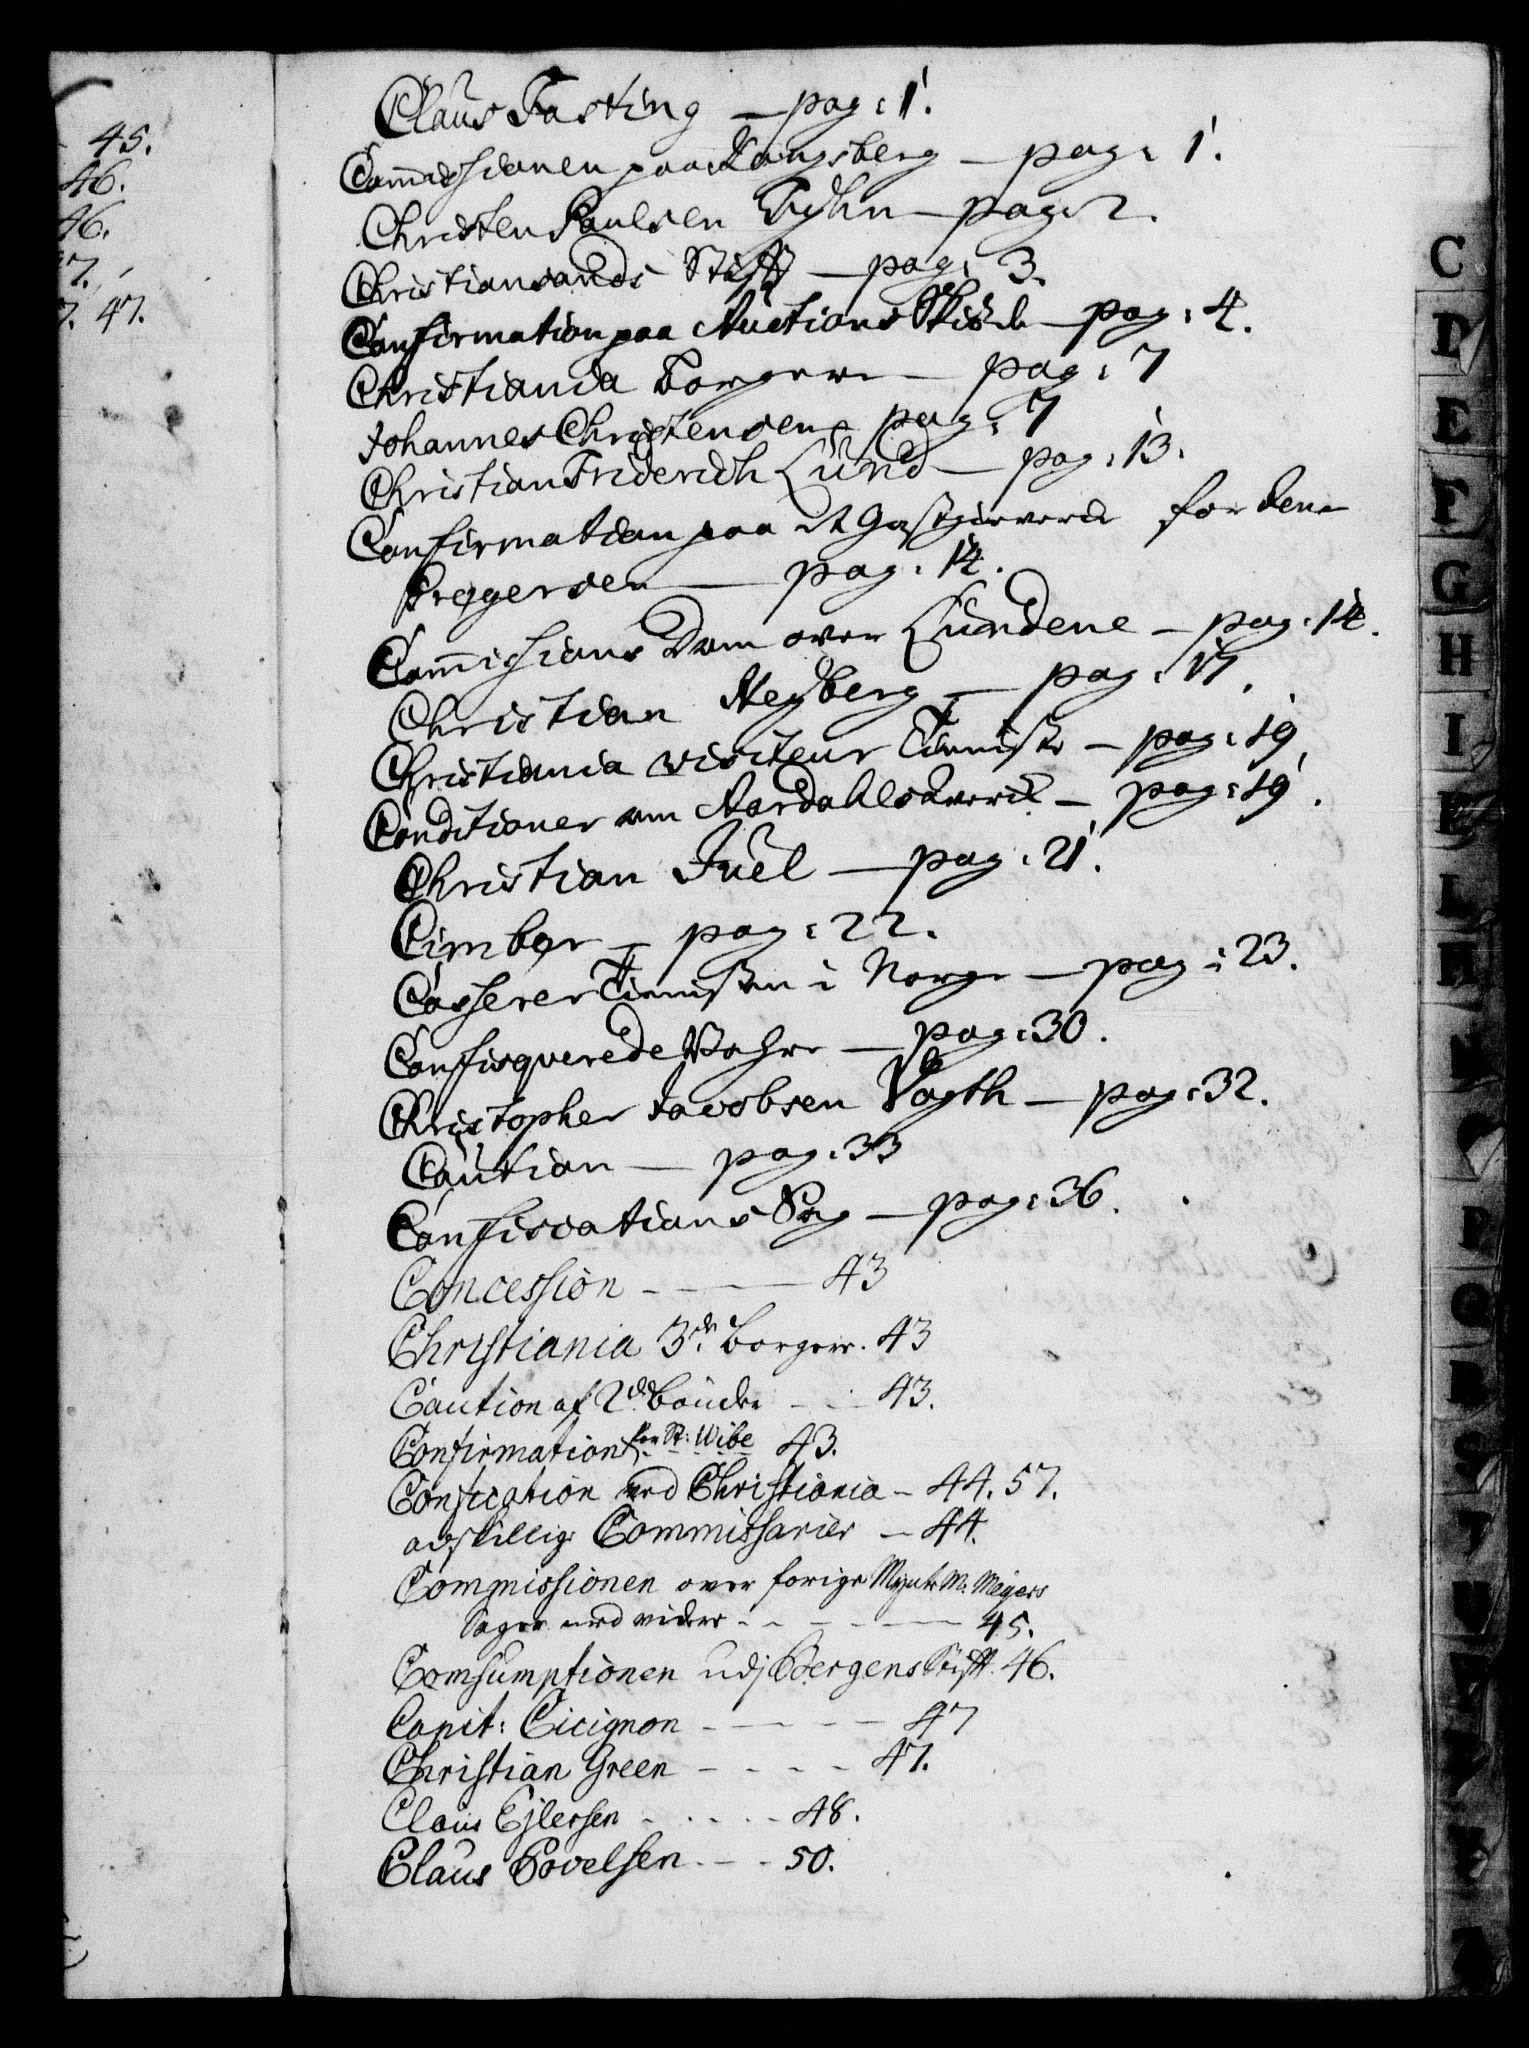 45.
46.
46.
47.
7. 47.
Claus Fasting – pag: 1.
Commissionen paa Kongsberg – pag: 1.
Christen Paulsen – pag: 2.
Christiansands Stifft – pag: 3.
Confirmation paa Auctions Skiøde – pag: 4.
Christiania Borgere – pag: 7
Johannes Christensen – pag: 7
Christian Friderich Lund – pag: 13.
Confirmation paa et Gastgieverie for Jens
Breggersen – pag: 14.
Commissions Dom over Lundene – pag: 14.
Christian Heyberg – pag: 17.
Christiania visiteur Tieniste – pag: 19
Conditioner om Aardahls Værck – pag: 19.
Christian Juel – pag: 21.
Cimber – pag: 22.
Casserer Tienisten i Norge – pag: 23.
Confisquerede Vahre – pag: 30.
Christopher Jacobsen Vogth – pag: 32.
Caution – pag: 33
Confiscations Sag – pag: 36.
Concession – 43
Christiania 3de Borgere. 43
Caution af 2de Bønder – 43.
Confirmation for St: Wibe 43.
Confication ved Christiania – 44. 57.
adskillige Commissarier – 44.
Commissionen over forige M: Meyers
Sager med videre – 45.
Comsumptionen udj Bergens Stifft. 46.
Capit: Cicignon – 47
Christian Green – 47.
Claus Ejlersen – 48.
Claus Povelsen – 50.
C
D
E
F
G
H
I
K
L
M
N
O
P
Q
R
S
T
U